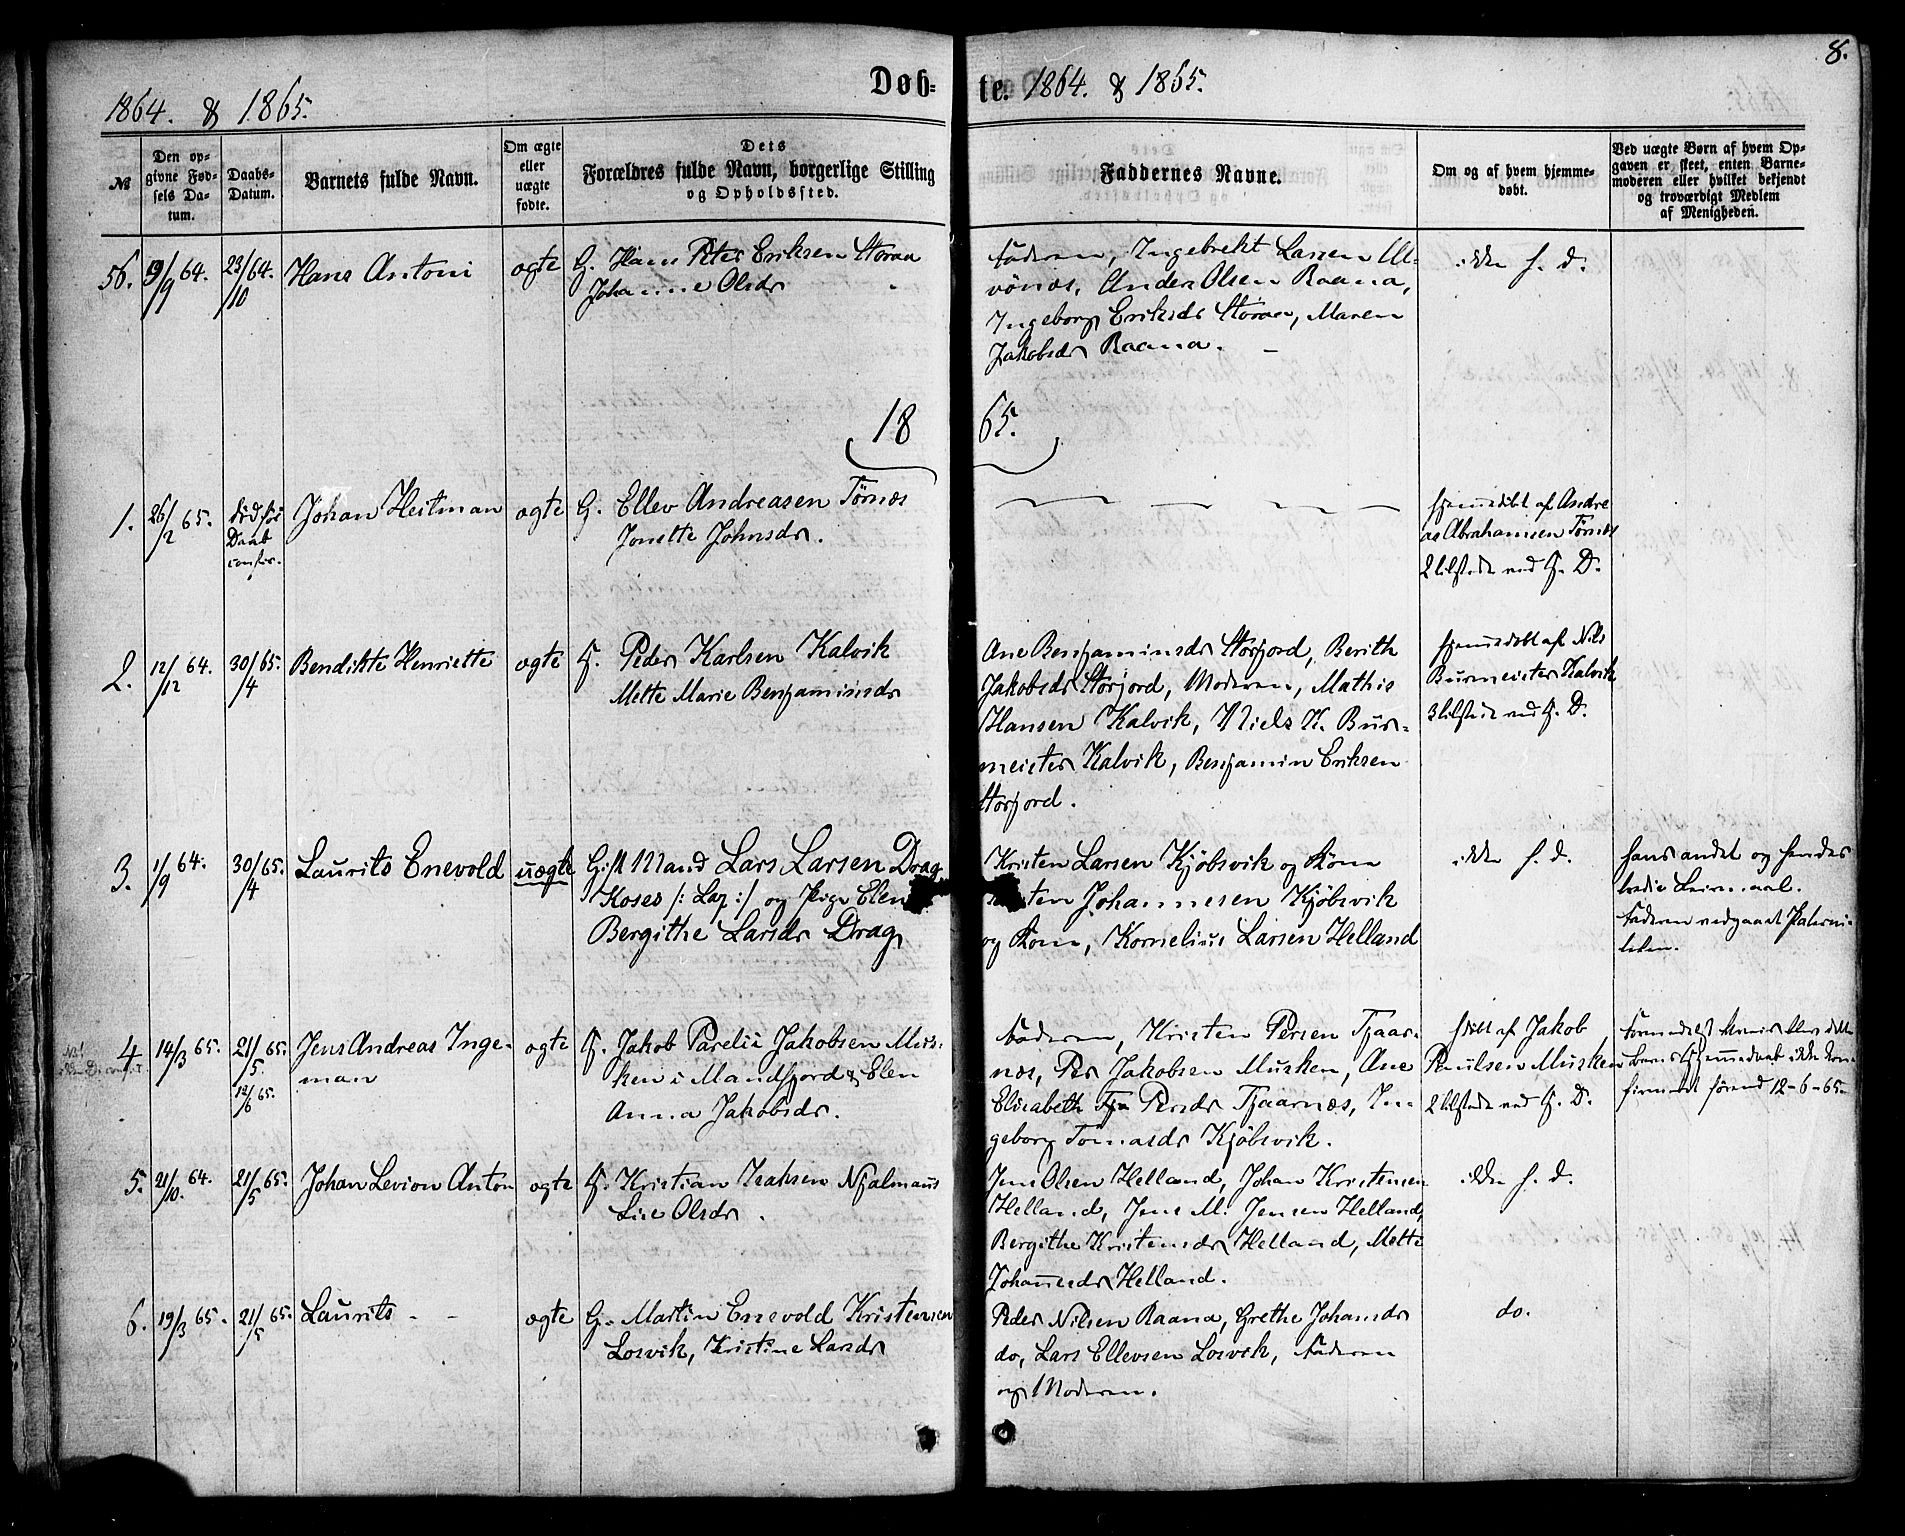 8.
Døb-
te. 1864. & 1865.
1864. & 1865.
№
Den op-
givne Fød-
sels Da-
tum.
Daabs-
Datum.
Barnets fulde Navn.
Om ægte
eller
uægte
fødte.
Dets
Forældres fulde Navn, borgerlige Stilling
og Opholdssted.
Faddernes Navne.
Om og af hvem hjemme-
døbt.
Ved uægte Børn af hvem Op-
gaven er skeet, enten Barne-
moderen eller hvilket bekjendt
og troværdigt Medlem
af Menigheden.
56. 9/9 64. 23/10 64. Hans Antoni ægte G. Hans Peter Eriksen Storaa
Johanne Olsdr
Faderen, Ingebrekt Larsen Ul-
vönæs, Anders Olsen Raana,
Ingeborg Eriksdr Storaa, Maren
Jakobsdr Raana.
ikke h. d.
18 65.
1. 26/2 65. død før
Daab
confir.
Johan Heitman ægte G. Ellev Andreasen Tørnæs
Jonette Johnsdr.
hjemdöbt af Andre
as Abrahamsen Tørnæs
2 tilstede ved H. D.
2. 12/12 64. 30/4 65. Bendikte Henriette ægte G. Peder Karlsen Kalvik
Mette Marie Benjaminsdr
Ane Benjaminsdr Storfjord, Berith
Jakobsdr Storjord, Moderen, Mathis
Hansen Kalvik, Niels K. Bur-
meister Kalvik, Benjamin Eriksen
Storjord.
hjemmedöbt af Nils
Burmeister Kalvik
3 tilstede ved H. D.
3. 1/9 64. 30/4 65. Laurits Enevold uægte Gift Mand Lars Larsen Drag
Koses /: Lap :/ og Pige Elen
Bergithe Larsdr Drag
Kristen Larsen Kjöbsvik og Kone
Johannesen Kjöbsvik
og Kone, Kornelius Larsen Helland
ikke h. d.
hans andet og hendes
tredie Leiermaal.
Faderen vedgaaet Paterni-
teten.
4. 14/3 65. 21/5 65.
12/6 65.
Jens Andreas Inge-
man
ægte G. Jakob Parelii Jakobsen Mus-
ken i Mandfjord & Elen
Anna Jakobsdr.
Faderen, Kristen Persen Tjaar-
næs, Per Jakobsen Musken, Ane
Elisabeth Persdr Tjaarnæs, In-
geborg Tomasdr Kjöbsvik.
hdöbt af Jakob
Poulsen Musken
2 tilstede ved H. D.
blev dette
Barns Hjemmedaab ikke kon-
firmeret førend 12-6-65.
5. 21/10. 64. 21/5 65. Johan Levion Anton ægte G. Kristian Isaksen Njalmaus
Lise Olsdr.
Jens Olsen Helland, Johan Kristensen
Helland, Jens M. Jensen Helland,
Bergithe Kristensdr Helland, Mette
Johannesdr Helland.
ikke h. d.
6. 19/3 65. 21/5 65. Laurits ægte G. Martin Enevold Kristensen
Losvik, Kristine Larsdr
Peder Nilsen Raana, Grethe Johansdr
do, Lars Ellevsen Losvik, Faderen
og Moderen.
do.